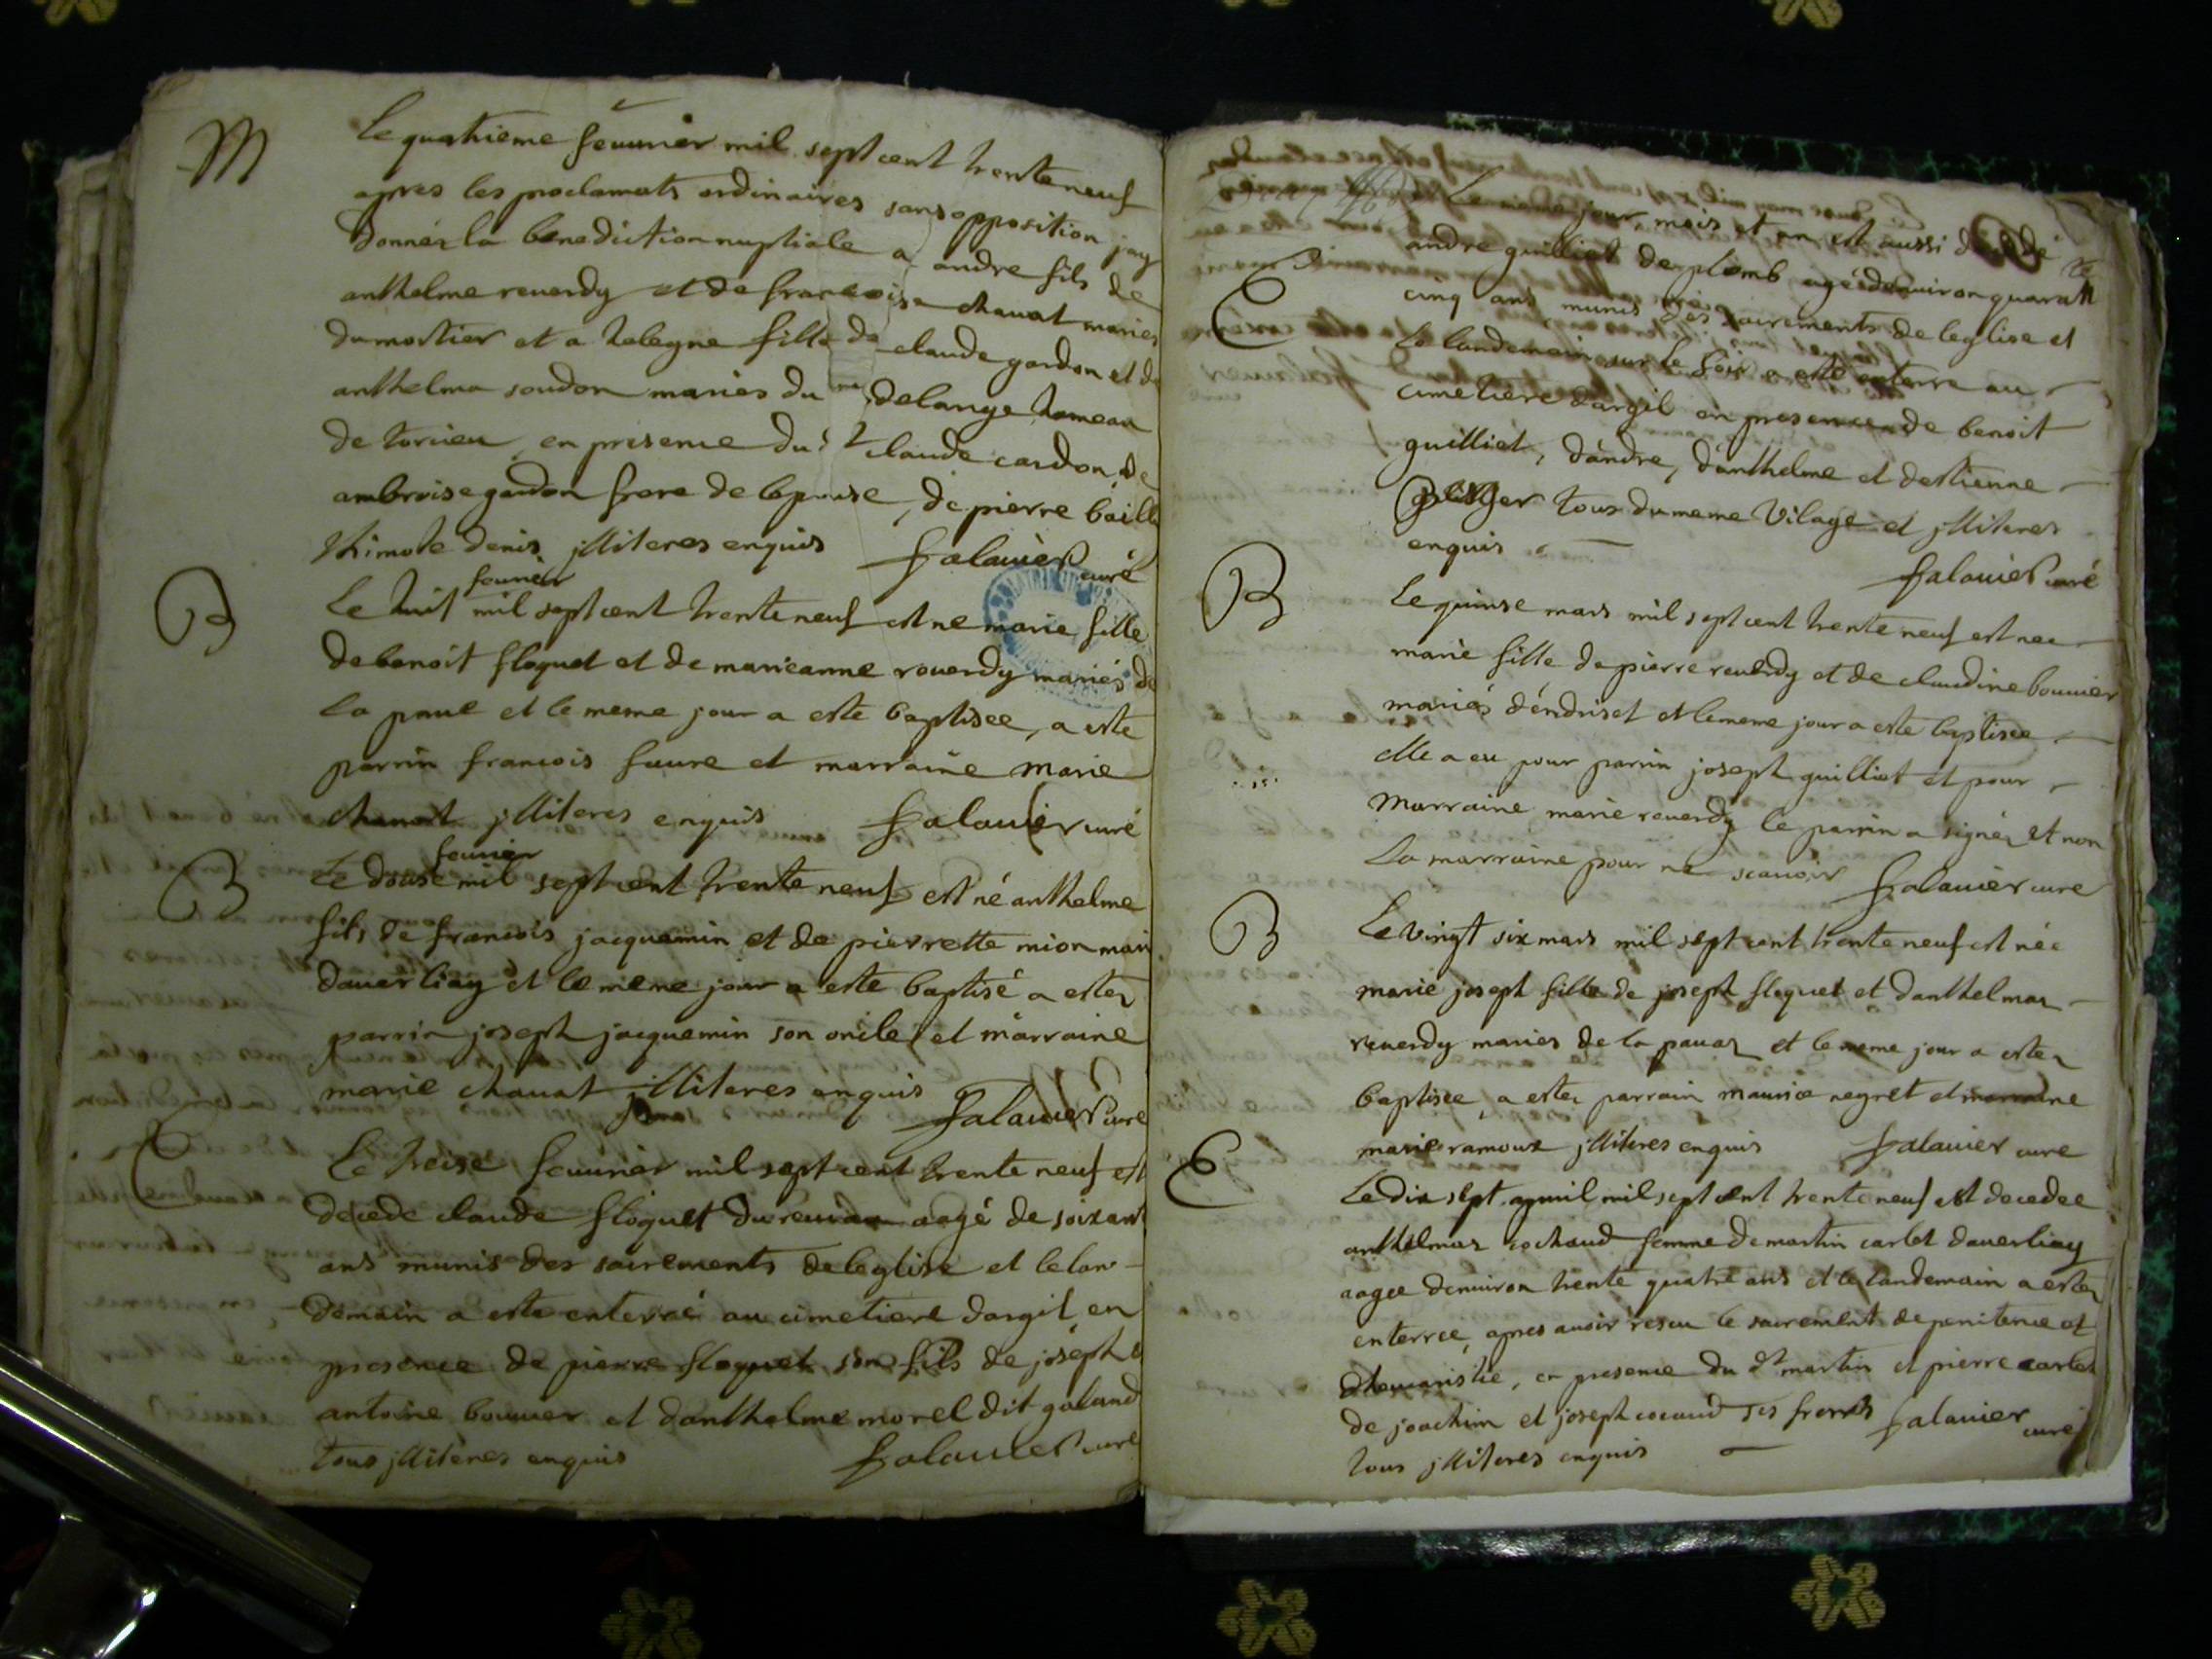 M
Le quatrieme feuurier mil sept cent trente neuf
apres les proclamats ordinaires sans opposition jay
donnéz la benediction nuptiale a andre fils de
anthelme reuerdy et de francoise chauat maries
du mortier et a fille de claude gardon et de
anthelma soudon maries du delange hameau
de torcieu en presence du claude cardon, de
ambroise gardon frere de lepouse, de pierre baill
thimote denis jlliteres enquis falauier curé
B
feurier
Le huit mil sept cent trente neuf est ne marie fille
de benoit floquet et de marieanne reuerdy mariés de
la paue et le meme jour a este baptisee, a este
parrin francois faure et marraine marie
chanat jlliteres enquis falauier curé
B
feurier
Le douse mil sept cent trente neuf est né anthelme
fils de francois jacquemin et de pierrette mion mari
dauerliay et le meme jour a este baptisé a estez
parrin joseph jacquemin son oncle et marraine
marie chauat jlliteres enquis
falauier cure
E
Le treise feuurier mil sept cent trente neuf est
decede claude floquet du aagé de soixant
ans munis des sacrements de leglise et le lan-
demain a este enterré au cimetiere dargil, en
presence de pierre floquet son fils de joseph e
antoine bouuier et danthelme morel dit galand
tous jlliteres enquis falauier cure
Le meme jour, mois et an est aussi décedé
andre guilliet de plomb agé denuiron quarante
E
cinq ans munis des sacrements de leglise et
le landemain sur le soir a este enterre au
cimetiere dargil en presence de benoit
guilliet, dandre, danthelme et destienne
tous du meme vilage et jlliteres
enquis
falauier curé
B
Le quinse mars mil sept cent trente neuf est nee
marie fille de pierre reuerdy et de claudine bouuier
mariés déndriset et le meme jour a este baptisee
elle a eu pour parrin joseph guilliet et pour
marraine marie reuerdy le parrin a signéz et non
la marraine pour ne scauoir
falauier cure
B
Le vingt six mars mil sept cent trente neuf est née
marie joseph fille de joseph floquet et danthelmaz
reuerdy maries de la pauaz et le meme jour a estez
baptisee, a estez parrain maurice negret et marraine
marie ramoux jlliteres enquis falauier cure
E
Le dix sept apuril mil sept cent trente neuf est decedee
anthelmaz cochaud femme de martin carlet dauerliay
aagee denuiron trente quatre ans et le landemain a estez
enterree, apres auoir resçu le sacrement de penitence et
, en presence du dt martin et pierre carlet
de joachim et joseph cocaud ses freres falauier
curé
tous jlliteres enquis